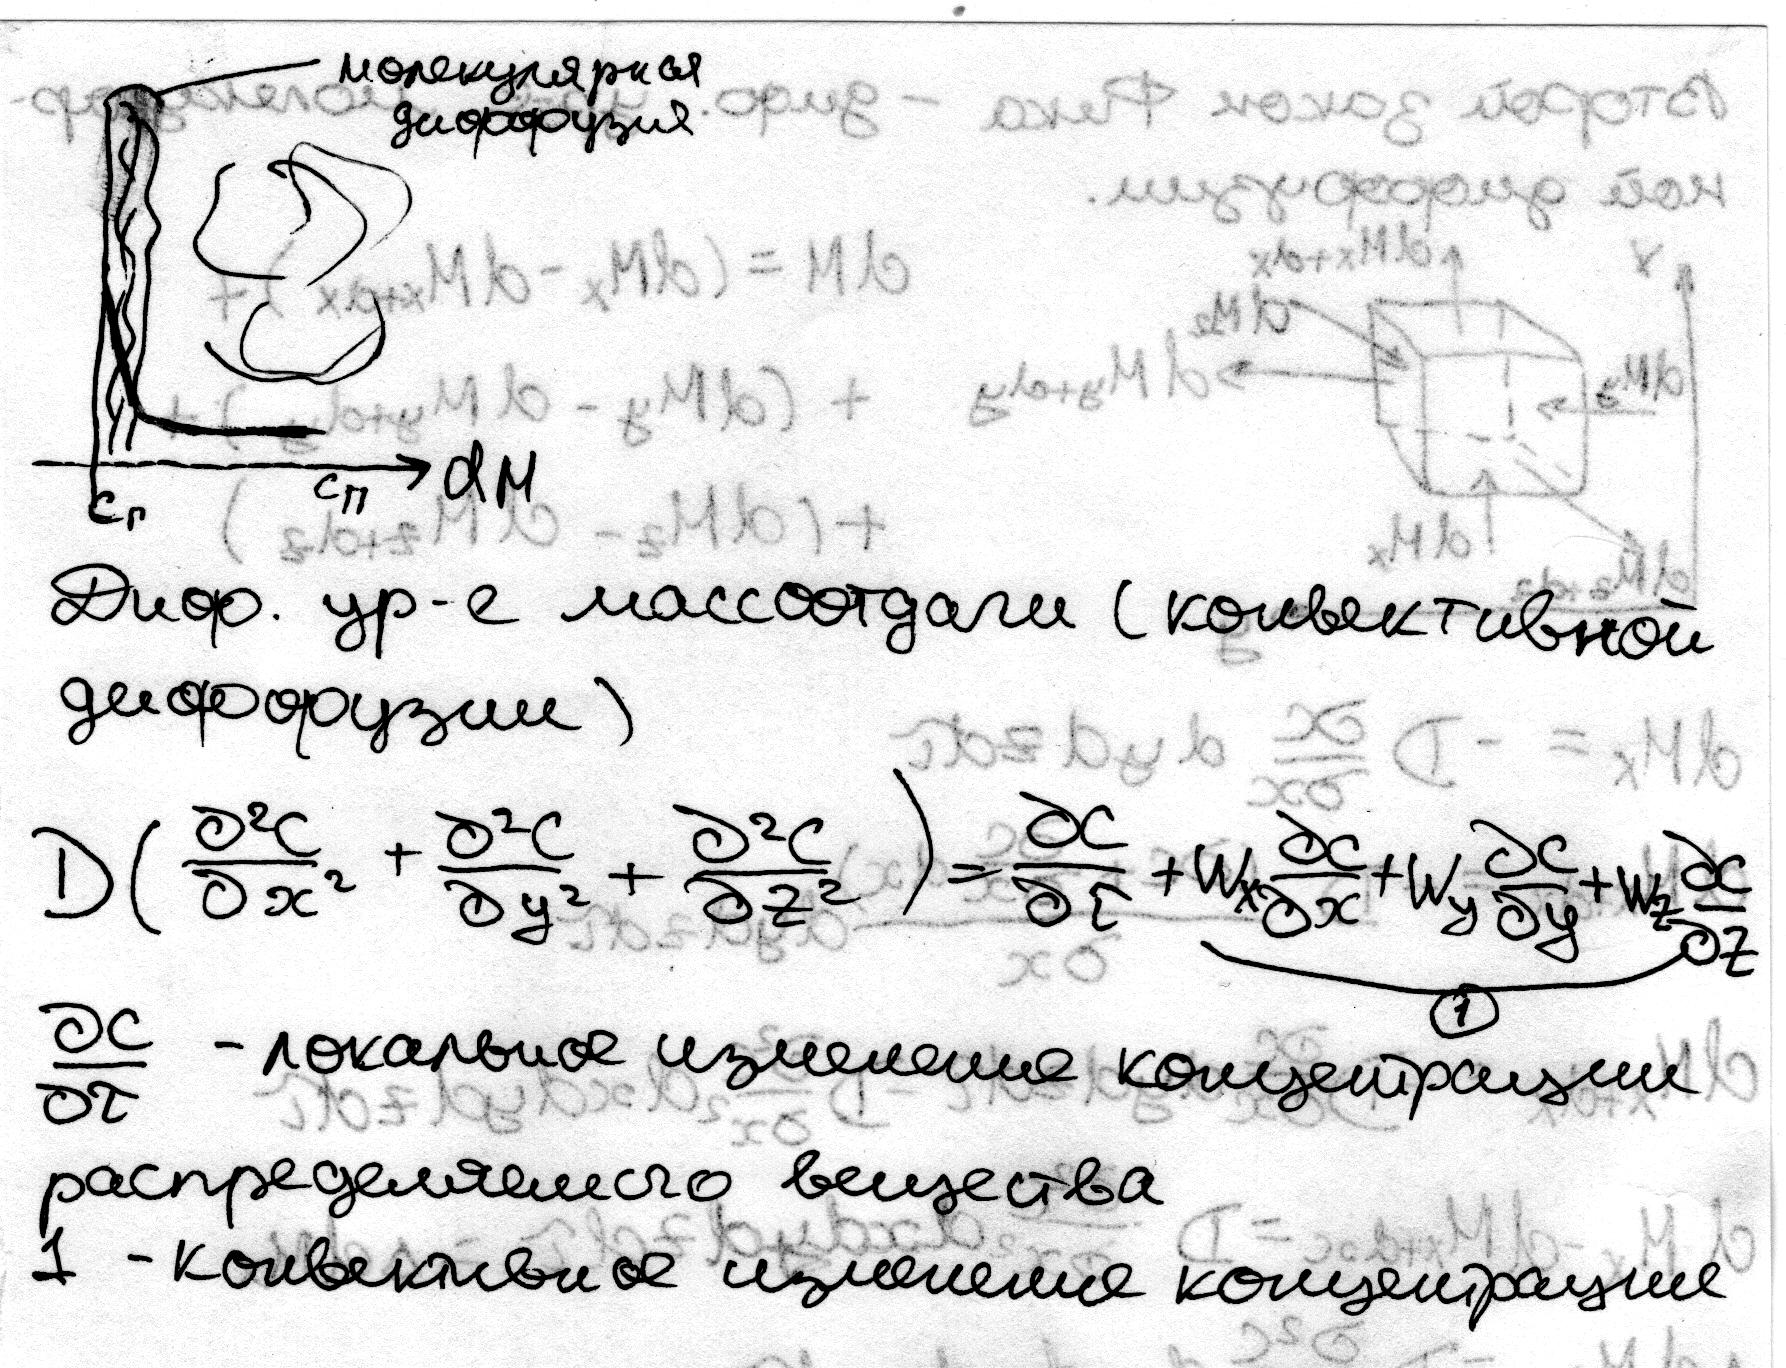 молекулярная
диффузия
Cг
Cп
dM
Диф. ур-е массоотдачи (конвективной
диффузии)
D(∂²C/∂x² + ∂²C/∂y² + ∂²C/∂z²) = ∂C/∂τ + Wx ∂C/∂x + Wy ∂C/∂y + Wz ∂C/∂z
1
∂C/∂τ - локальное изменение концентрации
распределяемого вещества
1 - конвективное изменение концентрации